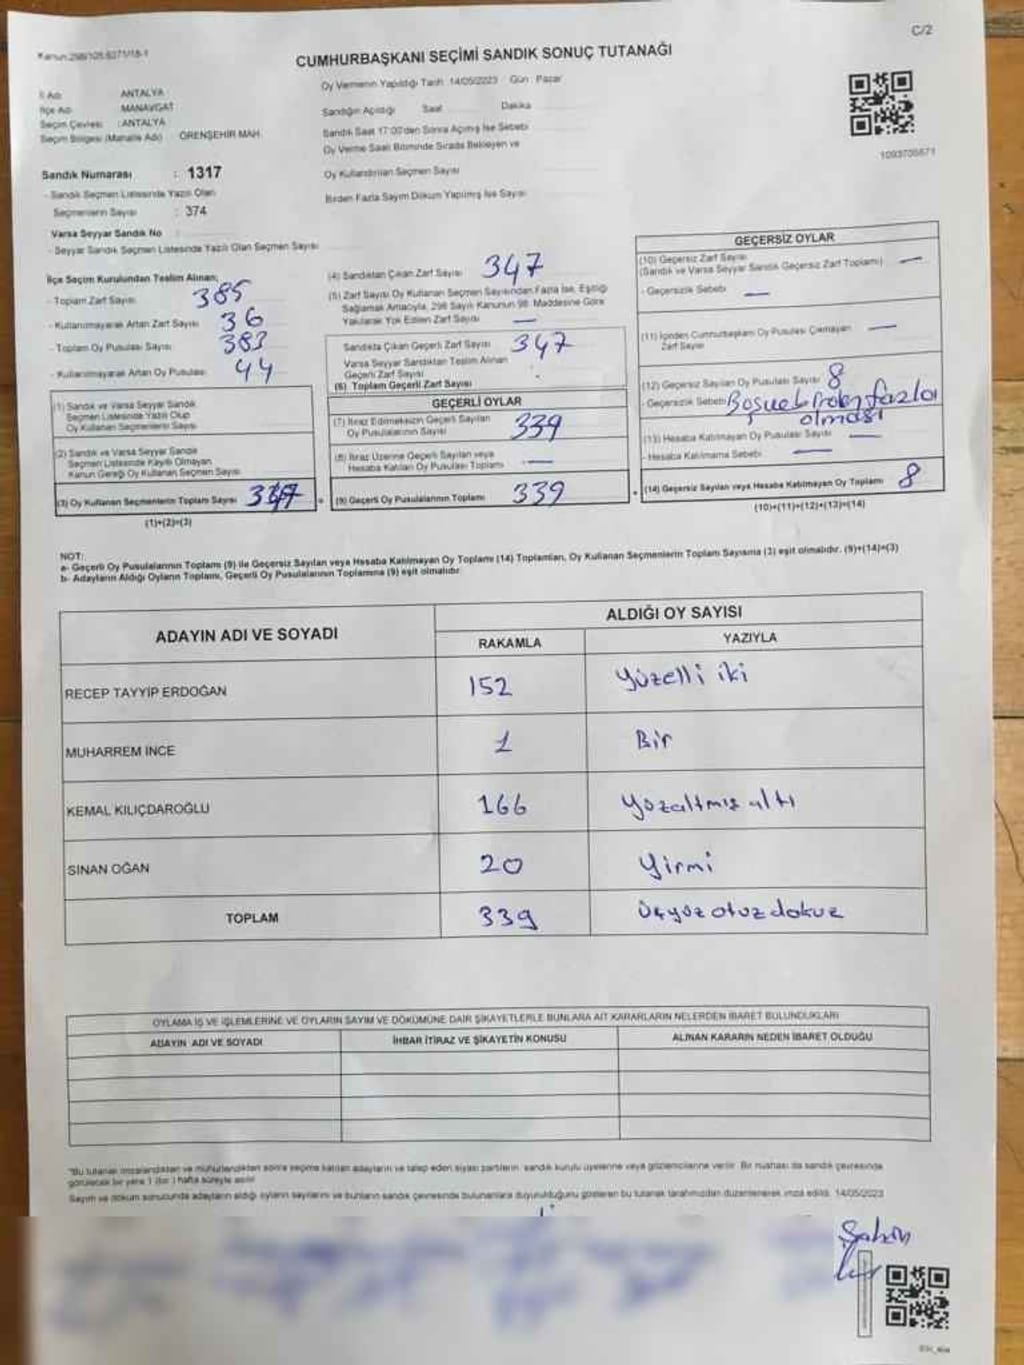 C/2
CUMHURBAŞKANI SEÇİMİ SANDIK SONUÇ TUTANAĞI
Oy Vermenin Yapıldığı Tarih :14/05/2023 Gün : Pazar
İl Adı ANTALYA
İlçe Adı MANAVGAT
Seçim Çevresi : ANTALYA
Seçim Bölgesi (Mahalle Adı) ÖRENŞEHİR MAH.
Sandığın Açıldığı Saat Dakika
Sandık Saat 17:00'den Sonra Açılmış İse Sebebi
Oy Verme Saati Bitiminde Sırada Bekleyen ve
Oy Kullandırılan Seçmen Sayısı
Birden Fazla Sayım Döküm Yapılmış İse Sayısı
Sandık Numarası : 1317
- Sandık Seçmen Listesinde Yazılı Olan
Seçmenlerin Sayısı : 374
Varsa Seyyar Sandık No
- Seyyar Sandık Seçmen Listesinde Yazılı Olan Seçmen Sayısı
İlçe Seçim Kurulundan Teslim Alınan;
- Toplam Zarf Sayısı 385
- Kullanılmayarak Artan Zarf Sayısı 36
- Toplam Oy Pusulası Sayısı 383
- Kullanılmayarak Artan Oy Pusulası 44
(1) Sandık ve Varsa Seyyar Sandık
Seçmen Listesinde Yazılı Olup
Oy Kullanan Seçmenlerin Sayısı
(2) Sandık ve Varsa Seyyar Sandık
Seçmen Listesinde Kayıtlı Olmayan
Kanun Gereği Oy Kullanan Seçmen Sayısı
(3) Oy Kullanan Seçmenlerin Toplam Sayısı 347
(1)+(2)=(3)
(4) Sandıktan Çıkan Zarf Sayısı 347
(5) Zarf Sayısı Oy Kullanan Seçmen Sayısından Fazla İse, Eşitliği
Sağlamak Amacıyla, 298 Sayılı Kanunun 98. Maddesine Göre
Yakılarak Yok Edilen Zarf Sayısı —
Sandıkta Çıkan Geçerli Zarf Sayısı 347
Varsa Seyyar Sandıktan Teslim Alınan
Geçerli Zarf Sayısı
(6) Toplam Geçerli Zarf Sayısı
GEÇERLİ OYLAR
(7) İtiraz Edilmeksizin Geçerli Sayılan
Oy Pusulalarının Sayısı 339
(8) İtiraz Üzerine Geçerli Sayılan veya
Hesaba Katılan Oy Pusulası Toplamı —
(9) Geçerli Oy Pusulalarının Toplamı 339
GEÇERSİZ OYLAR
(10) Geçersiz Zarf Sayısı
(Sandık ve Varsa Seyyar Sandık Geçersiz Zarf Toplamı) —
- Geçersizlik Sebebi —
(11) İçinden Cumhurbaşkanı Oy Pusulası Çıkmayan
Zarf Sayısı —
(12) Geçersiz Sayılan Oy Pusulası Sayısı 8
- Geçersizlik Sebebi Boş ve birden fazla
olması
(13) Hesaba Katılmayan Oy Pusulası Sayısı —
- Hesaba Katılmama Sebebi —
(14) Geçersiz Sayılan veya Hesaba Katılmayan Oy Toplamı 8
(10)+(11)+(12)+(13)=(14)
NOT:
a- Geçerli Oy Pusulalarının Toplamı (9) ile Geçersiz Sayılan veya Hesaba Katılmayan Oy Toplamı (14) Toplamları, Oy Kullanan Seçmenlerin Toplam Sayısına (3) eşit olmalıdır. (9)+(14)=(3)
b- Adayların Aldığı Oyların Toplamı, Geçerli Oy Pusulalarının Toplamına (9) eşit olmalıdır.
ADAYIN ADI VE SOYADI ALDIĞI OY SAYISI
RAKAMLA YAZIYLA
RECEP TAYYİP ERDOĞAN 152 yüzelli iki
MUHARREM İNCE 1 Bir
KEMAL KILIÇDAROĞLU 166 yüzaltmış altı
SİNAN OĞAN 20 yirmi
TOPLAM 339 üçyüz otuz dokuz
OYLAMA İŞ VE İŞLEMLERİNE VE OYLARIN SAYIM VE DÖKÜMÜNE DAİR ŞİKAYETLERLE BUNLARA AİT KARARLARIN NELERDEN İBARET BULUNDUKLARI
ADAYIN ADI VE SOYADI İHBAR İTİRAZ VE ŞİKAYETİN KONUSU ALINAN KARARIN NEDEN İBARET OLDUĞU
"Bu tutanak imzalandıktan ve mühürlendikten sonra seçime katılan adayların ve talep eden siyasi partilerin, sandık kurulu üyelerine veya gözlemcilerine verilir. Bir nüshası da sandık çevresinde
görülecek bir yere 1 (bir ) hafta süreyle asılır.
Sayım ve döküm sonucunda adayların aldığı oyların sayılarını ve bunların sandık çevresinde bulunanlara duyurulduğunu gösteren bu tutanak tarafımızdan düzenlenerek imza edildi. 14/05/2023
Şahin